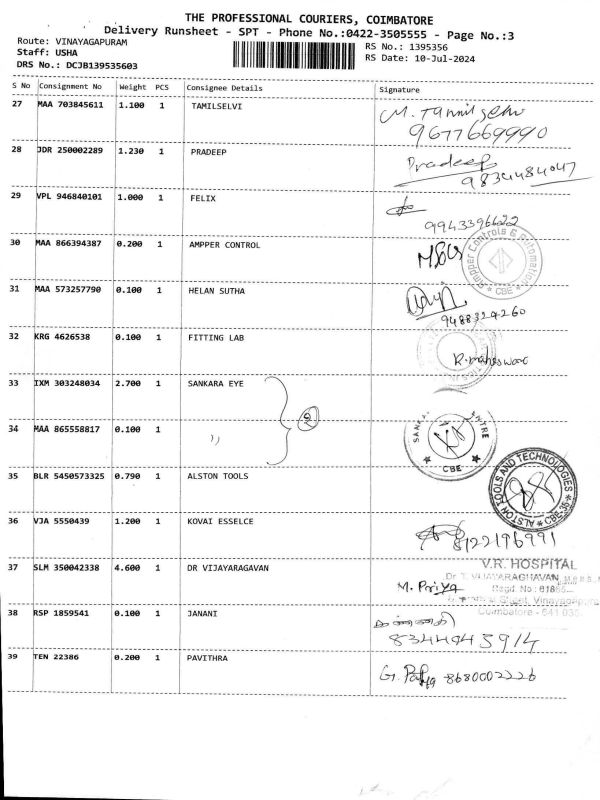 THE PROFESSIONAL COURIERS, COIMBATORE
Delivery Runsheet - SPT - Phone No.:0422-3505555 - Page No.:3
Route: VINAYAGAPURAM
RS No.: 1395356
Staff: USHA
RS Date: 10-Jul-2024
DRS No.: DCJB139535603
S No Consignment No Weight PCS Consignee Details Signature
27 MAA 703845611 1.100 1 TAMILSELVI M. Tamilselvi
9677669990
28 JDR 250002289 1.230 1 PRADEEP Pradeep
9834484047
29 VPL 946840101 1.000 1 FELIX
9943396622
30 MAA 866394387 0.200 1 AMPPER CONTROL
Ampper Controls & Automation
* CBE *
31 MAA 573257790 0.100 1 HELAN SUTHA
9488324260
32 KRG 4626538 0.100 1 FITTING LAB
R. maheswari
33 IXM 303248034 2.700 1 SANKARA EYE
2
34 MAA 865558817 0.100 1 ,,
CBE
35 BLR 5450573325 0.790 1 ALSTON TOOLS
ALSTON TOOLS AND TECHNOLOGIES
* CBE-35 *
36 VJA 5550439 1.200 1 KOVAI ESSELCE
8122196991
37 SLM 350042338 4.600 1 DR VIJAYARAGAVAN M. Priya
V.R. HOSPITAL
Dr T. VIJAYARAGHAVAN, M.B.B.S.
Regd. No : 61865
Street, Vinayagapuram
Coimbatore - 641 035.
38 RSP 1859541 0.100 1 JANANI
8344943914
39 TEN 22386 0.200 1 PAVITHRA G. 8680002226